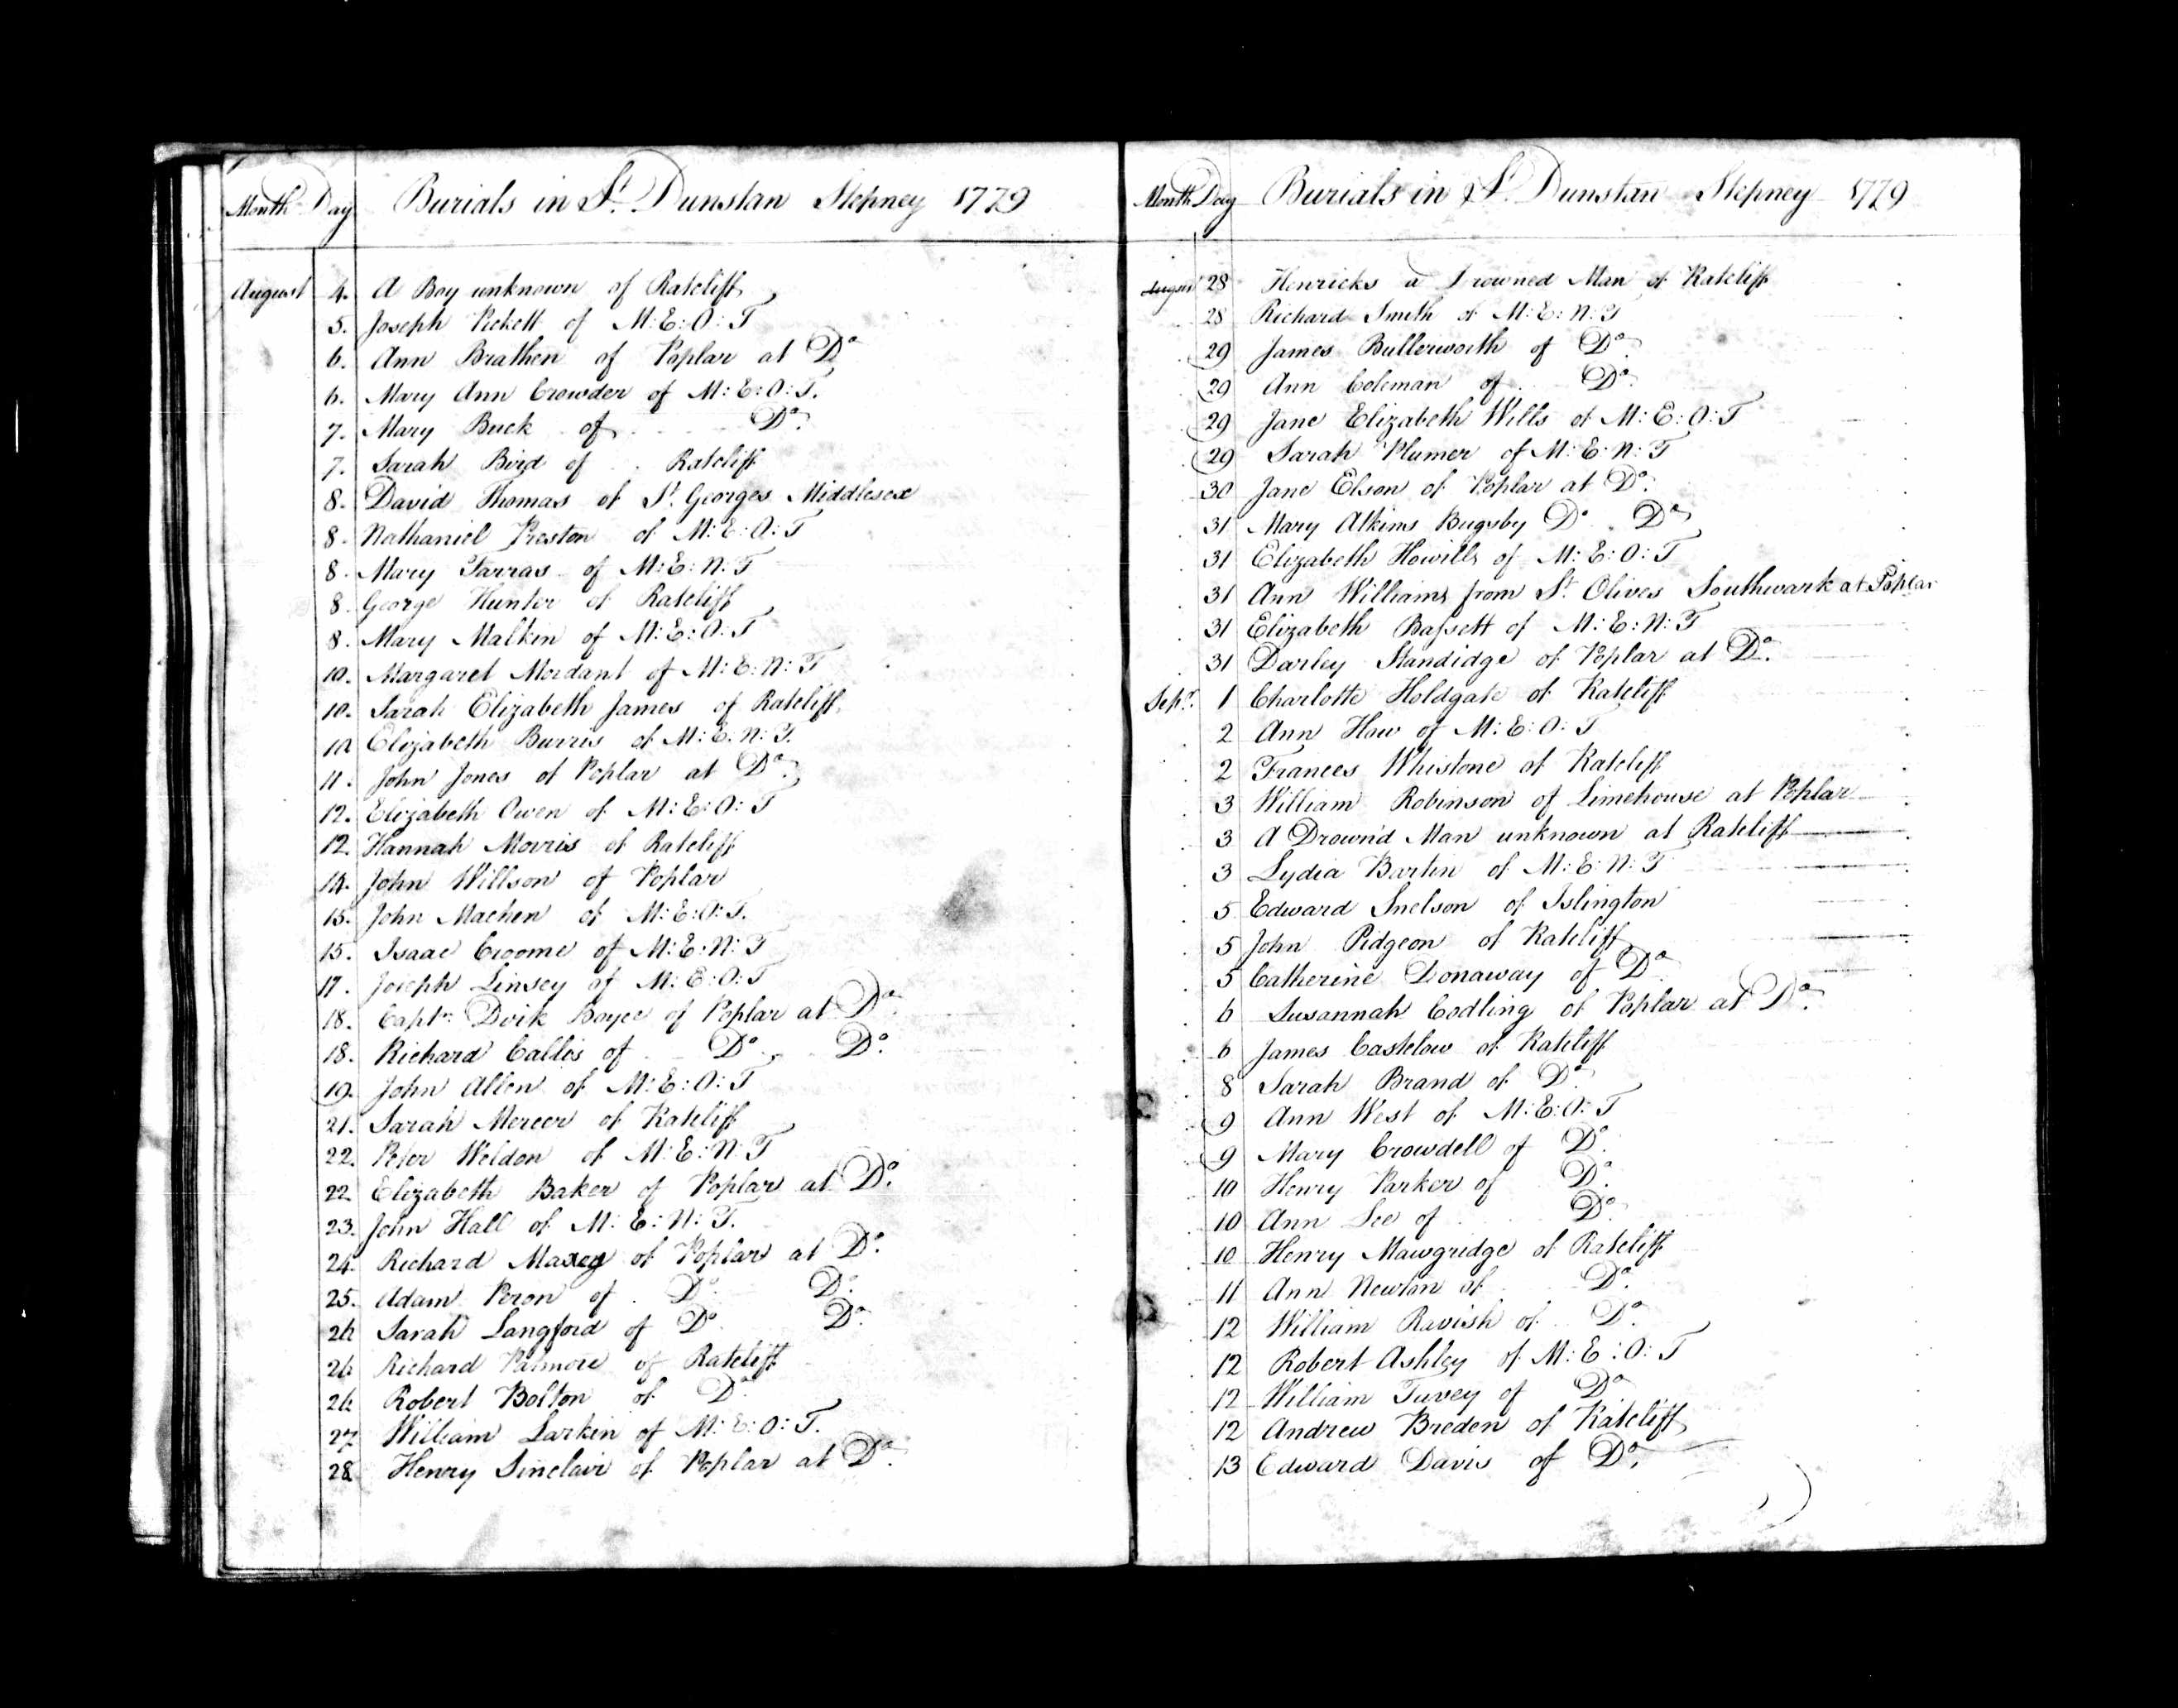 Month Day Burials in St. Dunstan Stepney 1779
August 4. A Boy unknown of Ratcliff
5. Joseph Pickett of M:E:O:T
6. Ann Brathen of Poplar at Do
6. Mary Ann Crowder of M:E:O:T.
7. Mary Buck of Do.
7. Sarah Bird of Ratcliff
8. David Thomas of St. Georges Middlesex
8. Nathaniel Preston of M:E:O:T
8. Mary Farras of M:E:N:T
8. George Hunter of Ratcliff
8. Mary Malkin of M:E:O:T
10. Margaret Mordant of M:E:N:T
10. Sarah Elizabeth James of Ratcliff
10 Elizabeth Burris of M:E:N:T.
11. John Jones of Poplar at Do.
12. Elizabeth Owen of M:E:O:T
12. Hannah Morris of Ratcliff
14. John Willson of Poplar
15. John Machen of M:E:O:T.
15. Isaac Croome of M:E:N:T
17. Joseph Linsey of M:E:O:T
18. Captn. Boyce of Poplar at Do
18. Richard Callis of Do. Do.
19. John Allen of M:E:O:T
21. Sarah Mercer of Ratcliff
22. Peter Weldon of M:E:N:T
22 Elizabeth Baker of Poplar at Do.
23. John Hall of M:E:N:T.
24. Richard Maxey of Poplar at Do.
25. Adam Peron of Do. Do.
26 Sarah Langford of Do Do.
26 Richard Palmore of Ratcliff
26 Robert Bolton of Do
27 William Larkin of M:E:O:T.
28 Henry Sinclair of Poplar at Do.
Month Day Burials in St. Dunstan Stepney 1779
August 28 Henricks a Drowned Man of Ratcliff
28 Richard Smith of M:E:N:T
29 James Butterworth of Do.
29 Ann Coleman of Do.
29 Jane Elizabeth Wills of M:E:O:T
29 Sarah Plumer of M:E:N:T
30 Jane Elson of Poplar at Do.
31 Mary Atkins Bugsby Do Do
31 Elizabeth Howills of M:E:O:T
31 Ann Williams from St. Olives Southwark at Poplar
31 Elizabeth Bassett of M:E:N:T
31 Darley Standidge of Poplar at Do.
Sepr. 1 Charlotte Holdgate of Ratcliff
2 Ann Haw of M:E:O:T
2 Frances Whistone of Ratcliff
3 William Robinson of Limehouse at Poplar
3 A Drown'd Man unknown at Ratcliff
3 Lydia Bartin of M:E:N:T
5 Edward Snelson of Islington
5 John Pidgeon of Ratcliff
5 Catherine Donaway of Do
6 Susannah Codling of Poplar at Do.
6 James Castelow of Ratcliff
8 Sarah Brand of Do.
9 Ann West of M:E:O:T
9 Mary Crowdell of Do.
10 Henry Parker of Do.
10 Ann Lee of Do.
10 Henry Mawgridge of Ratcliff
11 Ann Newton of Do.
12 William Ravish of Do.
12 Robert Ashley of M:E:O:T
12 William Tuvey of Do
12 Andrew Breden of Ratcliff
13 Edward Davis of Do.